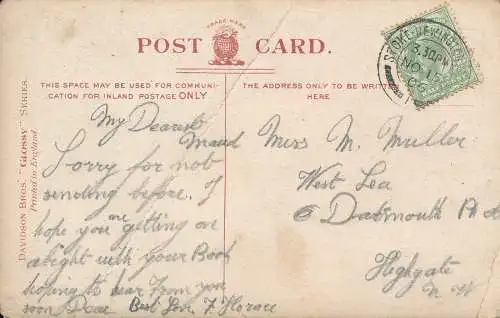 TRADE MARK
POST CARD.
THIS SPACE MAY BE USED FOR COMMUNI-
CATION FOR INLAND POSTAGE ONLY
THE ADDRESS ONLY TO BE WRITTEN
HERE
DAVIDSON BROS. "GLOSSY" SERIES.
Printed in England.
STOKE NEWINGTON
3.30PM
NO 15
My Dearest
Maud
Sorry for not
sending before. I
hope you are getting on
alright with your Book
hoping to hear from you
soon Dear Best Love F. Horace
Miss M. Muller
West Lea
6 Dartmouth Rd
Highgate
N.W